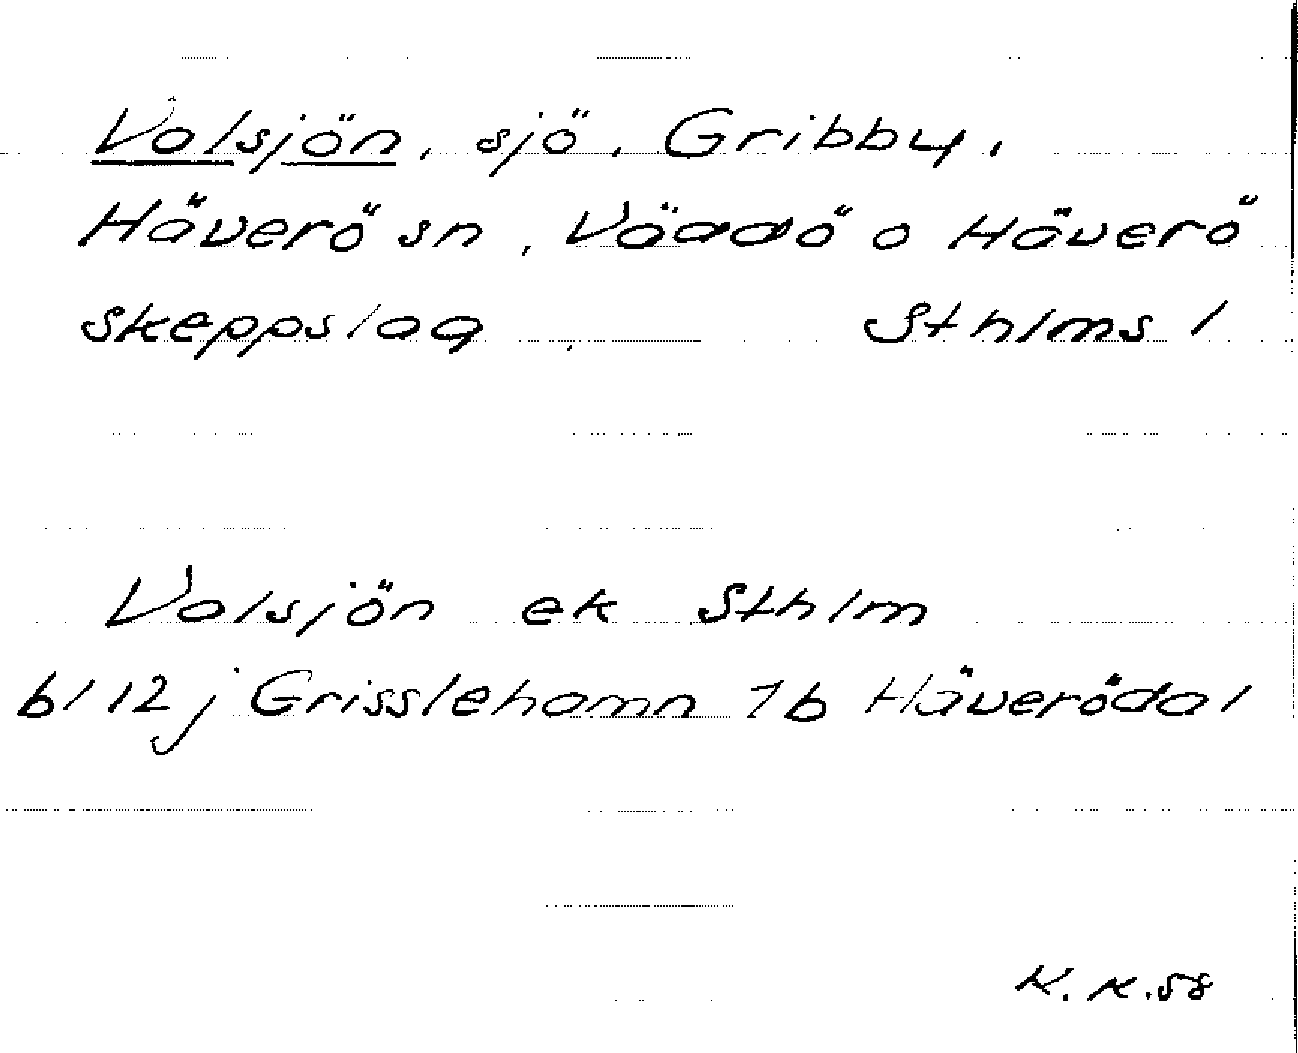 Valsjön, sjö, Gribby,
Häverö sn, Väddö o Häverö
skeppslag Sthlms l
Valsjön ek Sthlm
bl 12 j Grisslehamn 1b Häverödal
K. K. 58